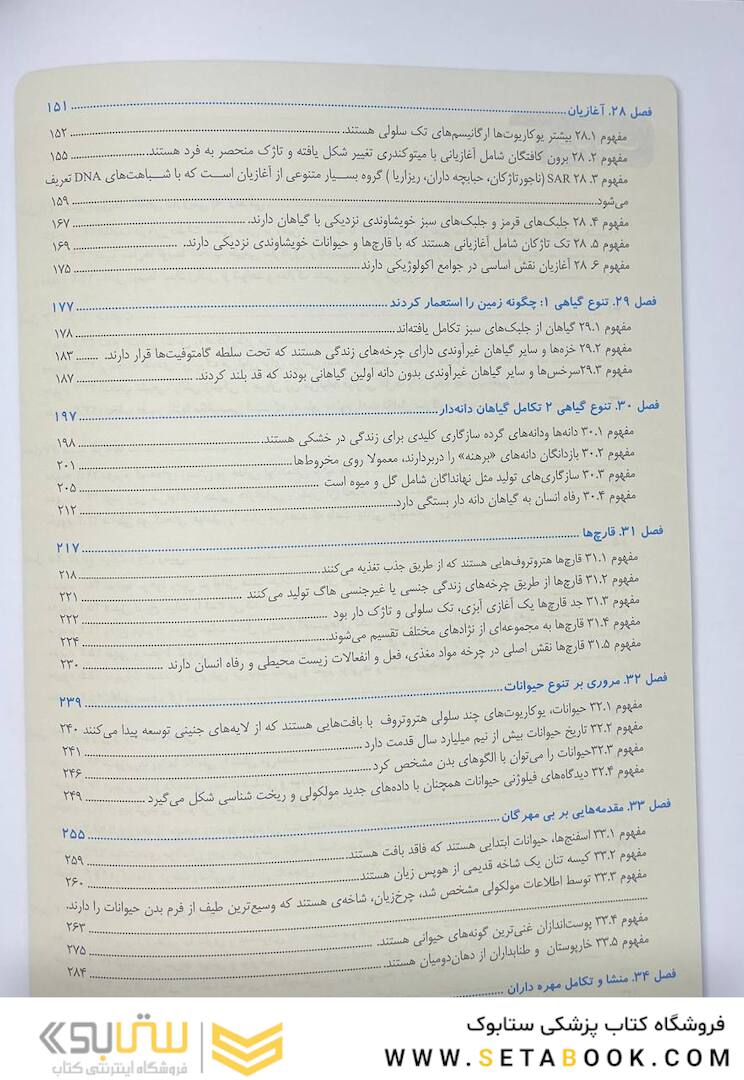 فصل ۲۸. آغازیان ........ ۱۵۱
مفهوم ۲۸.۱ بیشتر یوکاریوت‌ها ارگانیسم‌های تک سلولی هستند. ........ ۱۵۲
مفهوم ۲. ۲۸ برون کافتگان شامل آغازیانی با میتوکندری تغییر شکل یافته و تاژک منحصر به فرد هستند. ........ ۱۵۵
مفهوم ۳. ۲۸ SAR (ناجورتاژکان، حبابچه داران، ریزاریا ) گروه بسیار متنوعی از آغازیان است که با شباهت‌های DNA تعریف
می‌شود ........ ۱۵۹
مفهوم ۴. ۲۸ جلبک‌های قرمز و جلبک‌های سبز خویشاوندی نزدیکی با گیاهان دارند. ........ ۱۶۷
مفهوم ۵. ۲۸ تک تاژکان شامل آغازیانی هستند که با قارچ‌ها و حیوانات خویشاوندی نزدیکی دارند. ........ ۱۶۹
مفهوم ۶. ۲۸ آغازیان نقش اساسی در جوامع اکولوژیکی دارند ........ ۱۷۵
فصل ۲۹. تنوع گیاهی ۱: چگونه زمین را استعمار کردند ........ ۱۷۷
مفهوم ۲۹.۱ گیاهان از جلبک‌های سبز تکامل یافته‌اند ........ ۱۷۸
مفهوم ۲۹.۲ خزه‌ها و سایر گیاهان غیرآوندی دارای چرخه‌های زندگی هستند که تحت سلطه گامتوفیت‌ها قرار دارند. ........ ۱۸۳
مفهوم ۲۹.۳سرخس‌ها و سایر گیاهان غیرآوندی بدون دانه اولین گیاهانی بودند که قد بلند کردند. ........ ۱۸۷
فصل ۳۰. تنوع گیاهی ۲ تکامل گیاهان دانه‌دار ........ ۱۹۷
مفهوم ۳۰.۱ دانه‌ها ودانه‌های گرده سازگاری کلیدی برای زندگی در خشکی هستند ........ ۱۹۸
مفهوم ۳۰.۲ بازدانگان دانه‌های «برهنه» را دربردارند، معمولا روی مخروط‌ها ........ ۲۰۱
مفهوم ۳۰.۳ سازگاری‌های تولید مثل نهانداگان شامل گل و میوه است ........ ۲۰۵
مفهوم ۳۰.۴ رفاه انسان به گیاهان دانه دار بستگی دارد ........ ۲۱۲
فصل ۳۱. قارچ‌ها ........ ۲۱۷
مفهوم ۳۱.۱ قارچ‌ها هتروتروف‌هایی هستند که از طریق جذب تغذیه می‌کنند ........ ۲۱۸
مفهوم ۳۱.۲ قارچ‌ها از طریق چرخه‌های زندگی جنسی یا غیرجنسی هاگ تولید می‌کنند ........ ۲۲۱
مفهوم ۳۱.۳ جد قارچ‌ها یک آغازی آبزی، تک سلولی و تاژک دار بود ........ ۲۲۲
مفهوم ۳۱.۴ قارچ‌ها به مجموعه‌ای از نژادهای مختلف تقسیم می‌شوند ........ ۲۲۴
مفهوم ۳۱.۵ قارچ‌ها نقش اصلی در چرخه مواد مغذی، فعل و انفعالات زیست محیطی و رفاه انسان دارند ........ ۲۳۰
فصل ۳۲. مروری بر تنوع حیوانات ........ ۲۳۹
مفهوم ۳۲.۱ حیوانات، یوکاریوت‌های چند سلولی هتروتروف با بافت‌هایی هستند که از لایه‌های جنینی توسعه پیدا می‌کنند ۲۴۰
مفهوم ۳۲.۲ تاریخ حیوانات بیش از نیم میلیارد سال قدمت دارد ........ ۲۴۱
مفهوم ۳۲.۳حیوانات را می‌توان با الگوهای بدن مشخص کرد ........ ۲۴۶
مفهوم ۳۲.۴ دیدگاه‌های فیلوژنی حیوانات همچنان با داده‌های جدید مولکولی و ریخت شناسی شکل می‌گیرد ........ ۲۴۹
فصل ۳۳. مقدمه‌هایی بر بی مهرگان ........ ۲۵۵
مفهوم ۳۳.۱ اسفنج‌ها، حیوانات ابتدایی هستند که فاقد بافت هستند ........ ۲۵۹
مفهوم ۳۳.۲ کیسه تنان یک شاخه قدیمی از هوپس زیان هستند ........ ۲۶۰
مفهوم ۳۳.۳ توسط اطلاعات مولکولی مشخص شد، چرخ‌زیان، شاخه‌ی هستند که وسیع‌ترین طیف از فرم بدن حیوانات را دارند.
........ ۲۶۳
مفهوم ۳۳.۴ پوست‌اندازان غنی‌ترین گونه‌های حیوانی هستند. ........ ۲۷۵
مفهوم ۳۳.۵ خارپوستان و طنابداران از دهان‌دومیان هستند. ........ ۲۸۴
فصل ۳۴. منشا و تکامل مهره داران ........
فروشگاه کتاب پزشکی ستابوک
WWW.SETABOOK.COM
ستابوک
فروشگاه اینترنتی کتاب